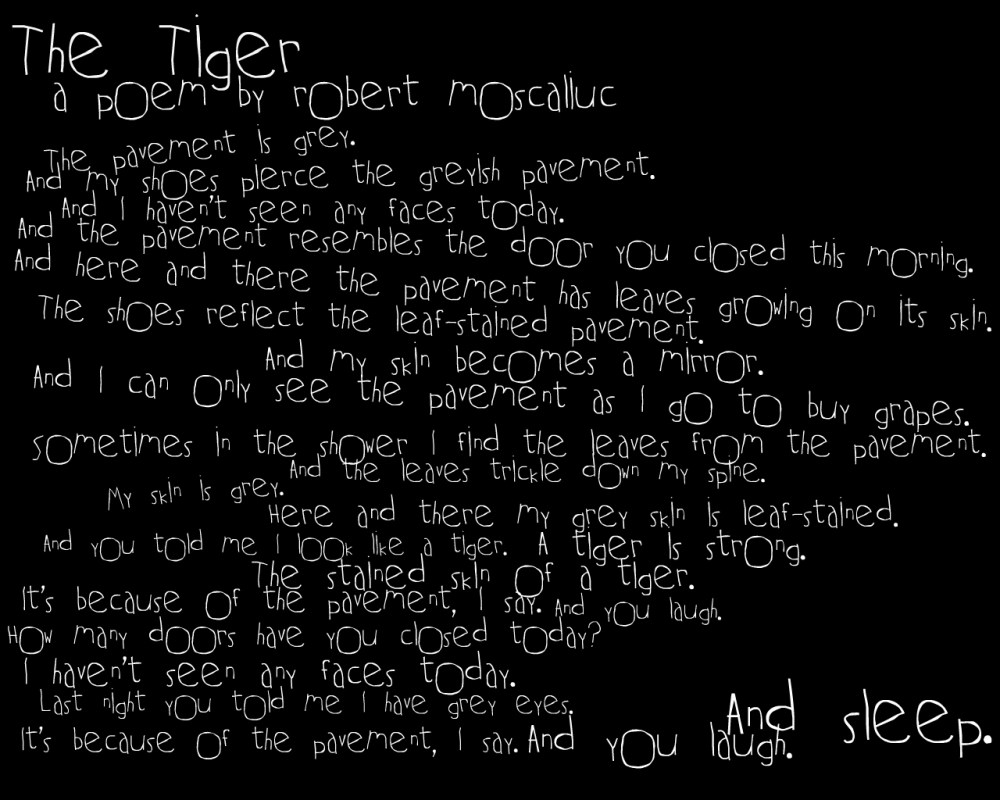 The Tiger
a poem by robert moscaliuc
The pavement is grey.
And my shoes pierce the greyish pavement.
And I haven't seen any faces today.
And the pavement resembles the door you closed this morning.
And here and there the pavement has leaves growing on its skin.
The shoes reflect the leaf-stained pavement.
And my skin becomes a mirror.
And I can only see the pavement as I go to buy grapes.
sometimes in the shower I find the leaves from the pavement.
And the leaves trickle down my spine.
My skin is grey.
Here and there my grey skin is leaf-stained.
And you told me I look like a tiger. A tiger is strong.
The stained skin of a tiger.
It's because of the pavement, I say. And you laugh.
How many doors have you closed today?
I haven't seen any faces today.
Last night you told me I have grey eyes.
It's because of the pavement, I say. And you laugh.
And sleep.